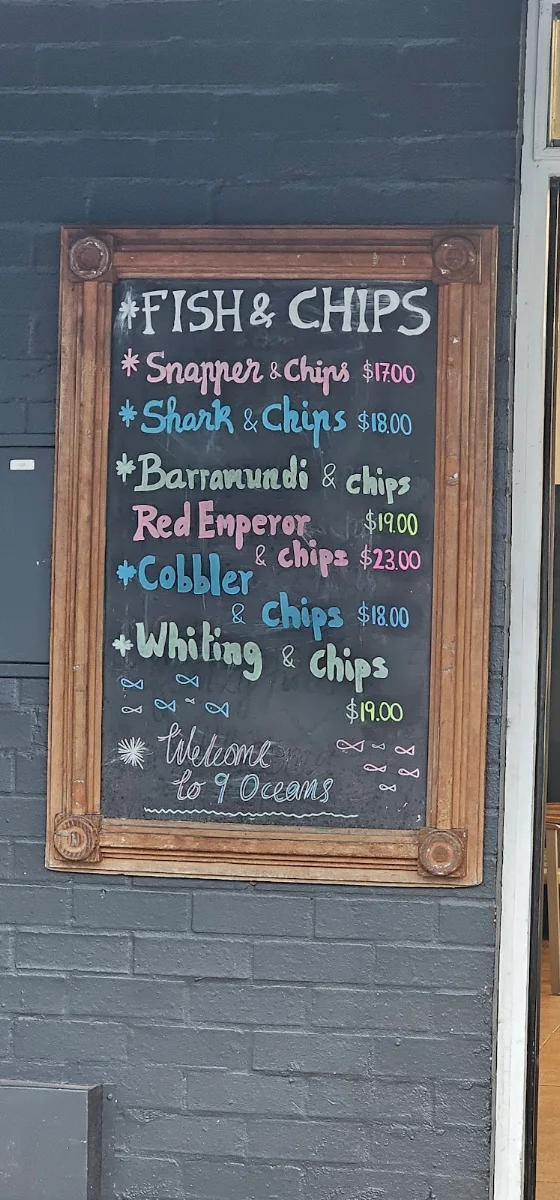 *FISH & CHIPS
* Snapper & Chips $17.00
* Shark & Chips $18.00
* Barramundi & chips
$19.00
Red Emperor
& chips $23.00
* Cobbler
& chips $18.00
* Whiting & chips
$19.00
* Welcome
to 9 Oceans